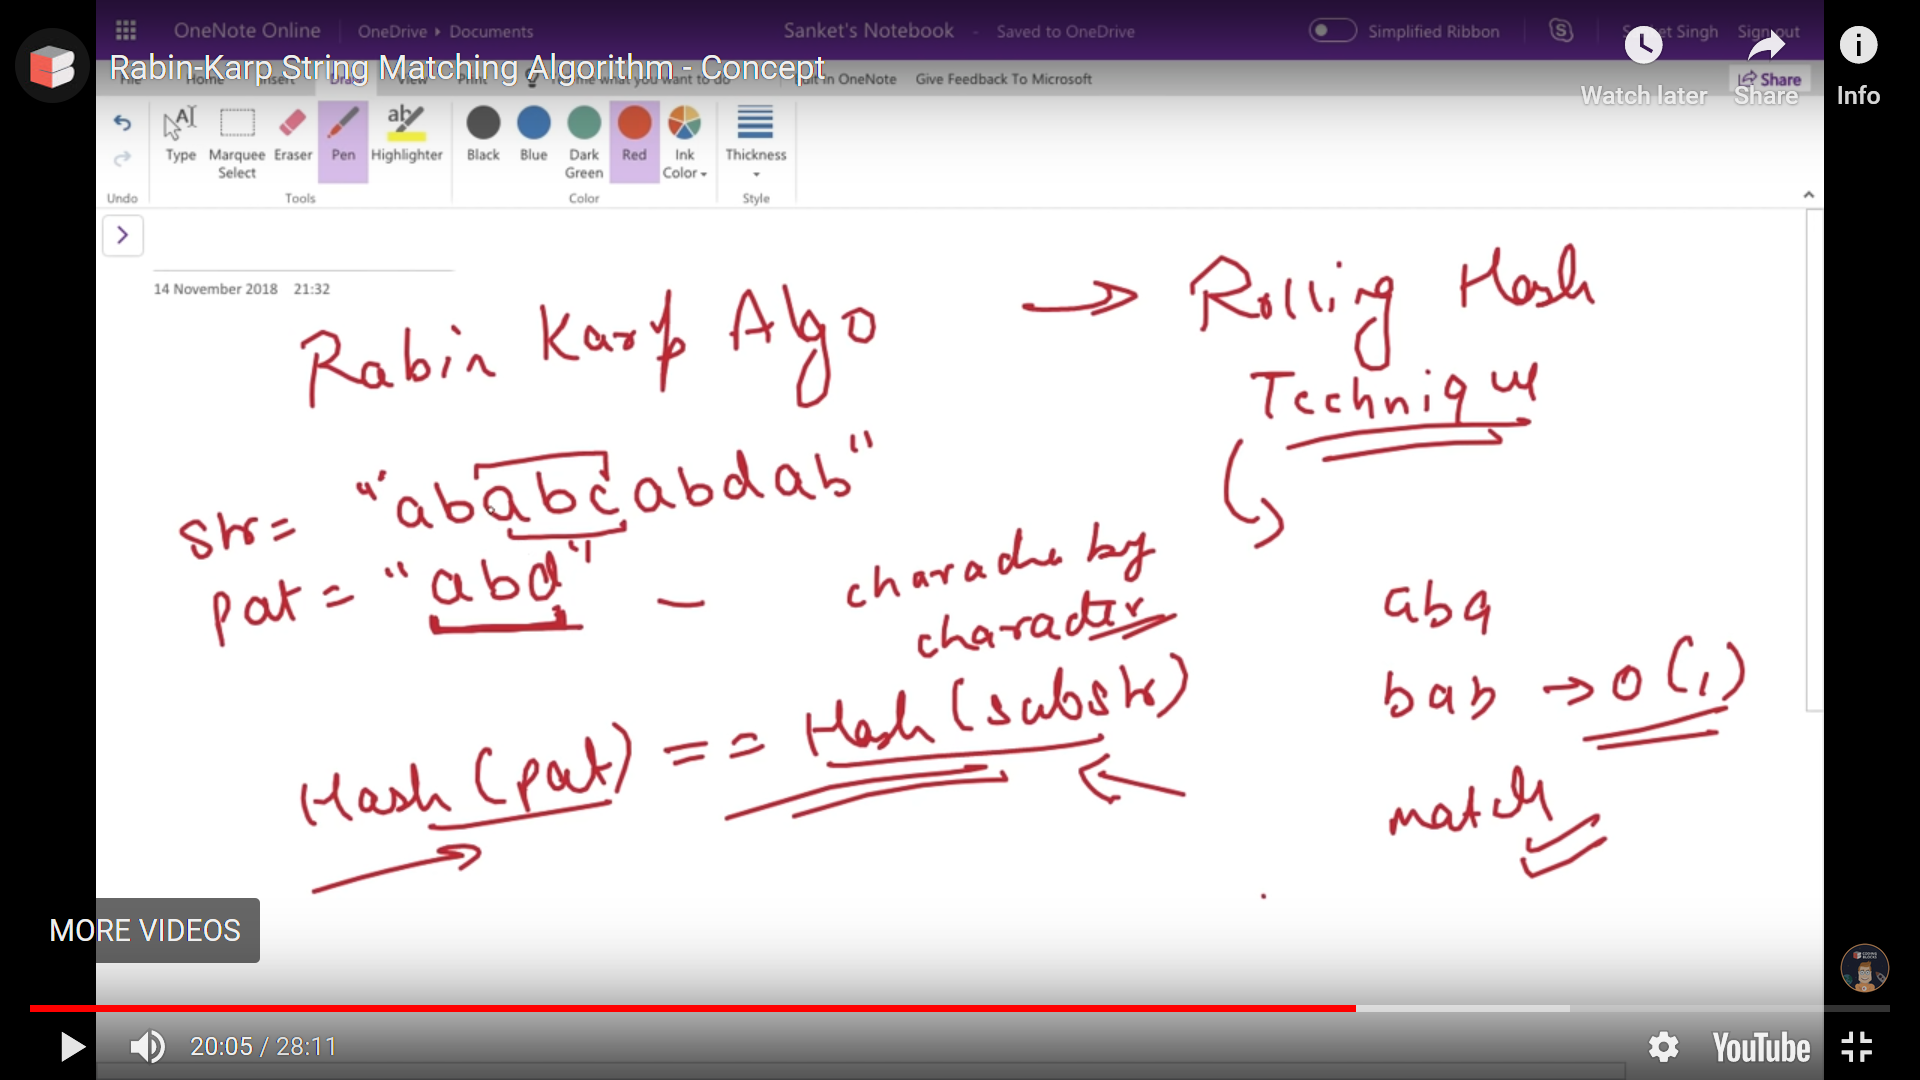 OneNote Online OneDrive ▸ Documents Sanket's Notebook - Saved to OneDrive Simplified Ribbon Sanket Singh Sign out
Rabin-Karp String Matching Algorithm - Concept
File Home Insert Draw View Print Tell me what you want to do Edit in OneNote Give Feedback To Microsoft Share
Watch later Share Info
Type Marquee Select Eraser Pen Highlighter Black Blue Dark Green Red Ink Color Thickness
Undo Tools Color Style
14 November 2018 21:32
Rabin Karp Algo → Rolling Hash
Technique
str = "ababcabdab"
pat = "abd" — character by
character
aba
bab → O(1)
Hash(pat) == Hash(substr)
match
MORE VIDEOS
20:05 / 28:11
YouTube